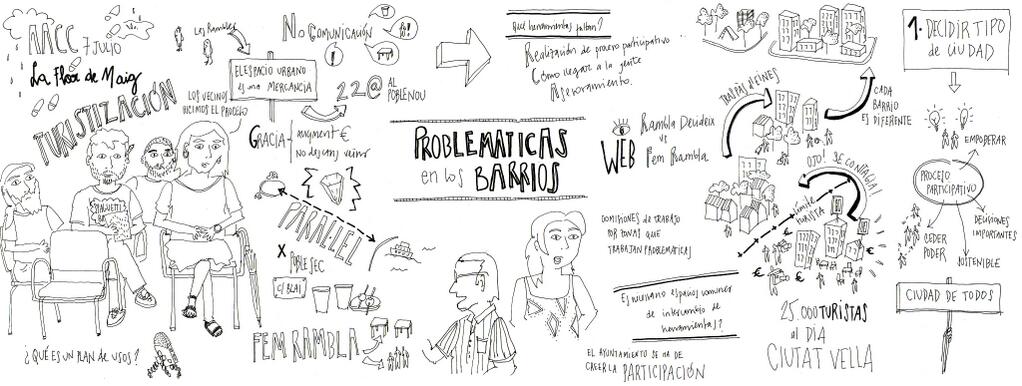 AACC 7 JULIO
La Flor de Maig
TURISTIZACIÓN
Las Ramblas
EL ESPACIO URBANO
es una MERCANCIA
LOS VECINOS
HICIMOS EL PROCESO
NO COMUNICACIÓN
22@ AL
POBLENOU
GRACIA
augment €
No descans veïns
PARAL·LEL
X POBLE SEC
C/BLAI
FEM RAMBLA
¿QUÉ ES UN PLAN DE USOS?
SPAGUETTI
PROBLEMATICAS
en los BARRIOS
Qué herramientas faltan?
Realización de proceso participativo
Cómo llegar a la gente
Asesoramiento.
WEB
Rambla Deudeix
vs
Fem Rambla
COMISIONES DE TRABAJO
POR ZONAS QUE
TRABAJAN PROBLEMÁTICAS
Es necesario espacios comunes
de intercambio de
herramientas?
EL AYUNTAMIENTO SE HA DE
CREER LA PARTICIPACIÓN
CADA
BARRIO
ES DIFERENTE
OJO! SE CONTAGIA!
LÍMITE
TURISTA
25.000 TURISTAS
al DÍA
CIUTAT VELLA
1. DECIDIR TIPO
de CIUDAD
EMPODERAR
PROCESO
PARTICIPATIVO
DECISIONES
IMPORTANTES
CEDER
PODER
SOSTENIBLE
CIUDAD DE TODOS